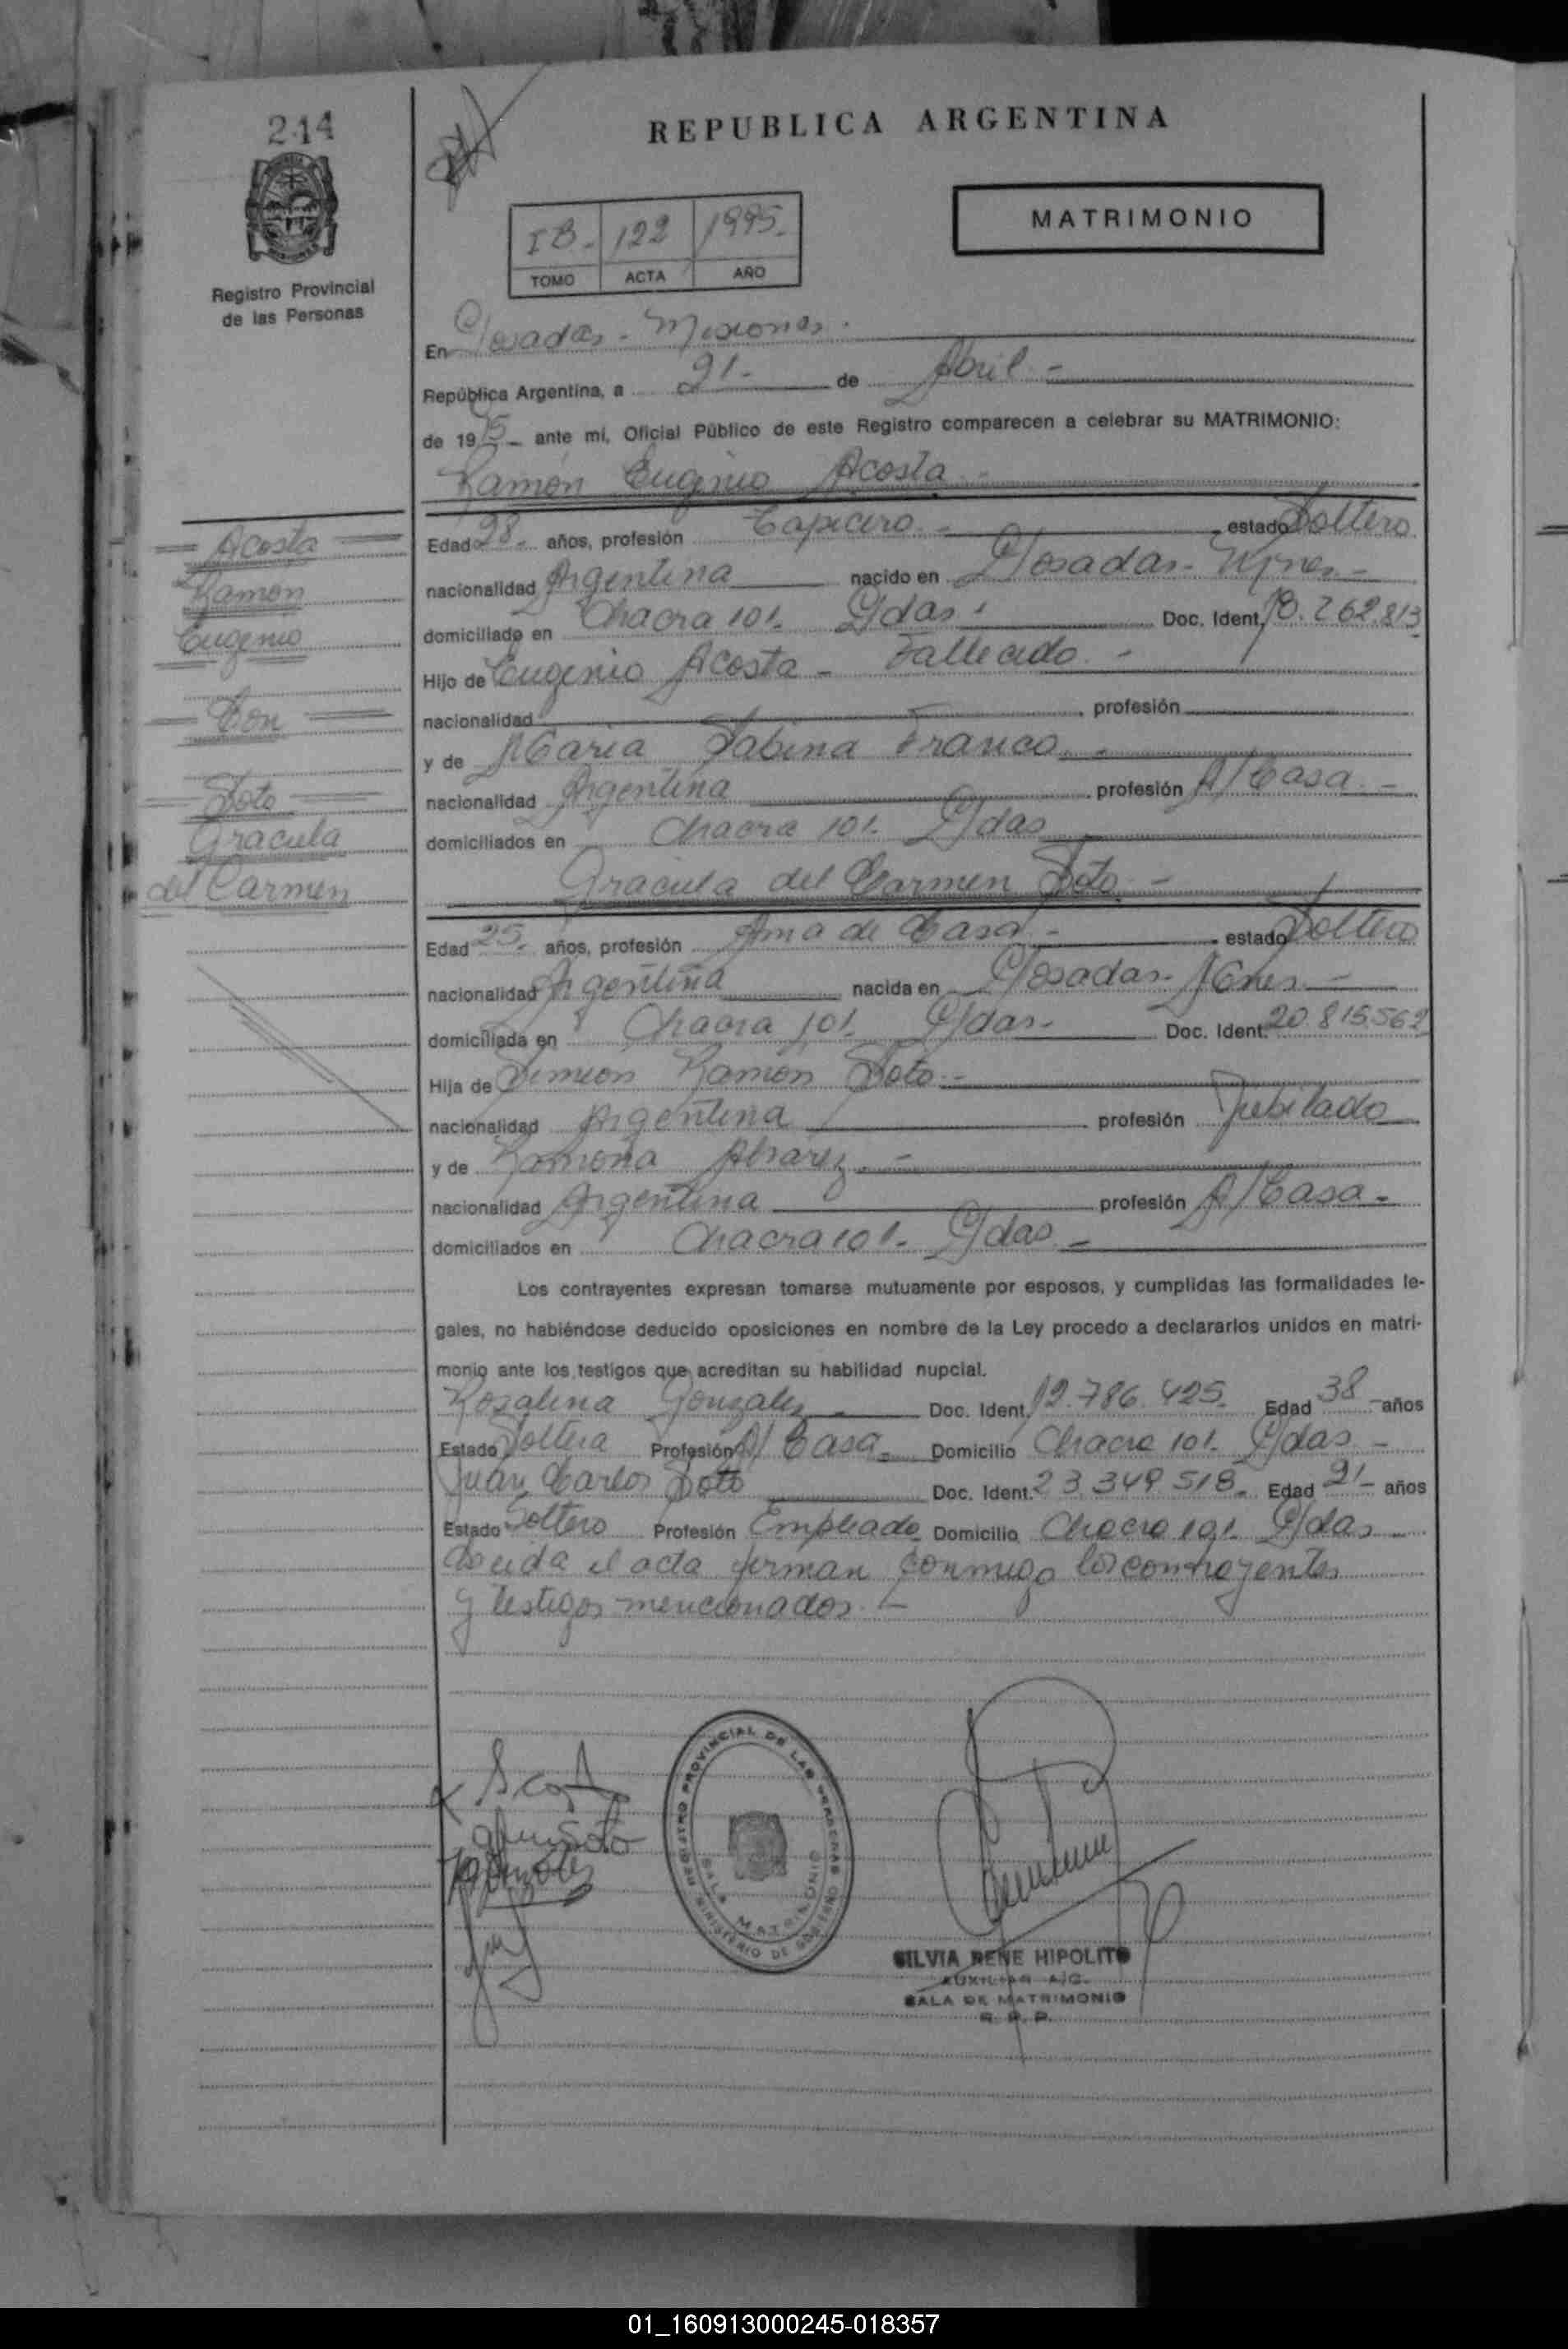 214
REPUBLICA ARGENTINA
MATRIMONIO
IB- 122 1995-
TOMO ACTA AÑO
Registro Provincial
de las Personas
En Posadas - Misiones -
República Argentina, a 21- de Abril -
de 1995- ante mi, Oficial Público de este Registro comparecen a celebrar su MATRIMONIO:
Ramón Eugenio Acosta -
Acosta
Ramon
Eugenio
Con
Soto
Graciela
del Carmen
Edad 28- años, profesión Tapicero - estado Soltero
nacionalidad Argentina nacido en Posadas - Mnes -
domiciliado en Chacra 101- Pdas - Doc. Ident. 18.262.813
Hijo de Eugenio Acosta - Fallecido -
nacionalidad profesión
y de Maria Sabina Franco -
nacionalidad Argentina profesión A/Casa -
domiciliados en Chacra 101- Pdas
Graciela del Carmen Soto -
Edad 25- años, profesión Ama de Casa - estado Soltera
nacionalidad Argentina nacida en Posadas - Mnes -
domiciliada en Chacra 101- Pdas - Doc. Ident. 20.815.562
Hija de Simeon Ramón Soto -
nacionalidad Argentina profesión Jubilado
y de Ramona Alvarez -
nacionalidad Argentina profesión A/Casa -
domiciliados en Chacra 101- Pdas -
Los contrayentes expresan tomarse mutuamente por esposos, y cumplidas las formalidades le-
gales, no habiéndose deducido oposiciones en nombre de la Ley procedo a declararlos unidos en matri-
monio ante los testigos que acreditan su habilidad nupcial.
Rosalina Gonzalez - Doc. Ident. 12.786.425- Edad 38 - años
Estado Soltera Profesión A/Casa - Domicilio Chacra 101- Pdas -
Juan Carlos Soto Doc. Ident. 23.349.518- Edad 21- años
Estado Soltero Profesión Empleado Domicilio Chacra 101- Pdas -
Leida el acta firman conmigo los contrayentes
y testigos mencionados -
REGISTRO PROVINCIAL DE LAS PERSONAS
SALA MATRIMONIO
MINISTERIO DE GOBIERNO
SILVIA RENE HIPOLITO
AUXILIAR A/C.
SALA DE MATRIMONIO
R. P. P.
01_160913000245-018357